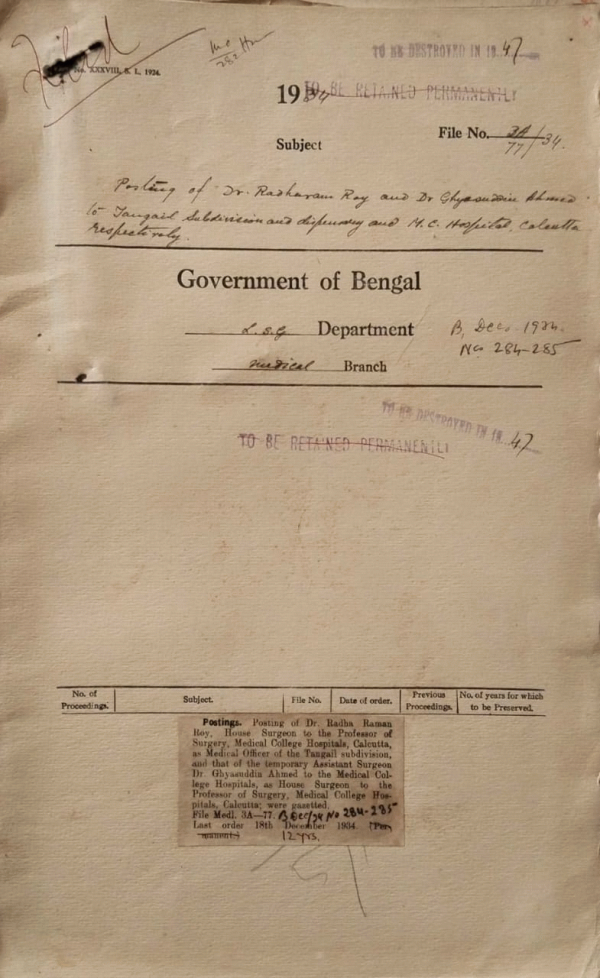 Filed
No. XXXVIII, S. L., 1924.
TO BE DESTROYED IN 19 47
1934 TO BE RETAINED PERMANENTLY
File No. 3A/77/34.
Subject
Posting of Dr. Radharam Roy and Dr Ghyasuddin Ahmed
to Tangail Subdivision and dispensary and M.C. Hospital, Calcutta
respectively.
Government of Bengal
L.S.G Department
B, Dec. 1934.
No 284-285
Medical Branch
TO BE DESTROYED IN 19 47
TO BE RETAINED PERMANENTLY
No. of Proceedings. Subject. File No. Date of order. Previous Proceedings. No. of years for which to be Preserved.
Postings. Posting of Dr. Radha Raman
Roy, House Surgeon to the Professor of
Surgery, Medical College Hospitals, Calcutta,
as Medical Officer of the Tangail subdivision,
and that of the temporary Assistant Surgeon
Dr. Ghyasuddin Ahmed to the Medical Col-
lege Hospitals, as House Surgeon to the
Professor of Surgery, Medical College Hos-
pitals, Calcutta; were gazetted.
File Medl. 3A—77. B Dec/34 No 284-285
Last order 18th December 1934. (Per-
manent.) 12 yrs.